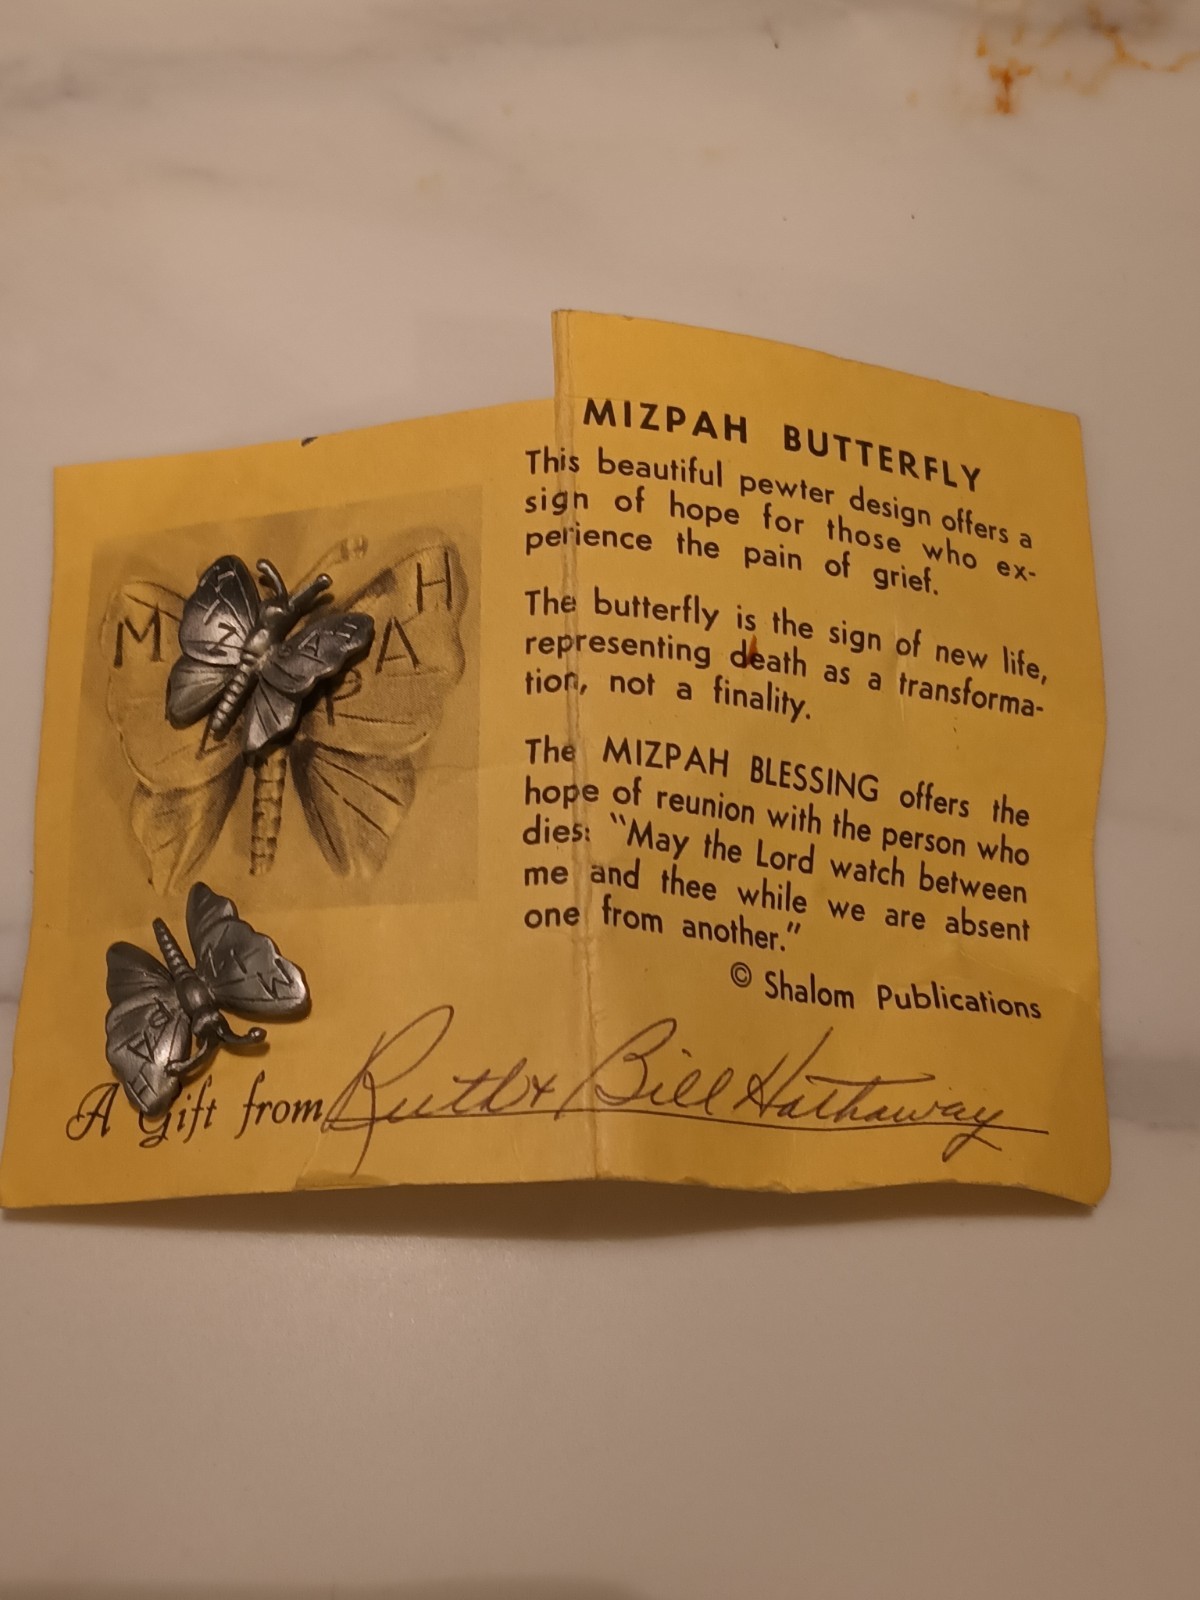 MIZPAH BUTTERFLY
This beautiful pewter design offers a
sign of hope for those who ex-
perience the pain of grief.
The butterfly is the sign of new life,
representing death as a transforma-
tion, not a finality.
The MIZPAH BLESSING offers the
hope of reunion with the person who
dies: "May the Lord watch between
me and thee while we are absent
one from another."
© Shalom Publications
M H
A
P
MIZPAH
MIZPAH
A Gift from Ruth & Bill Hathaway